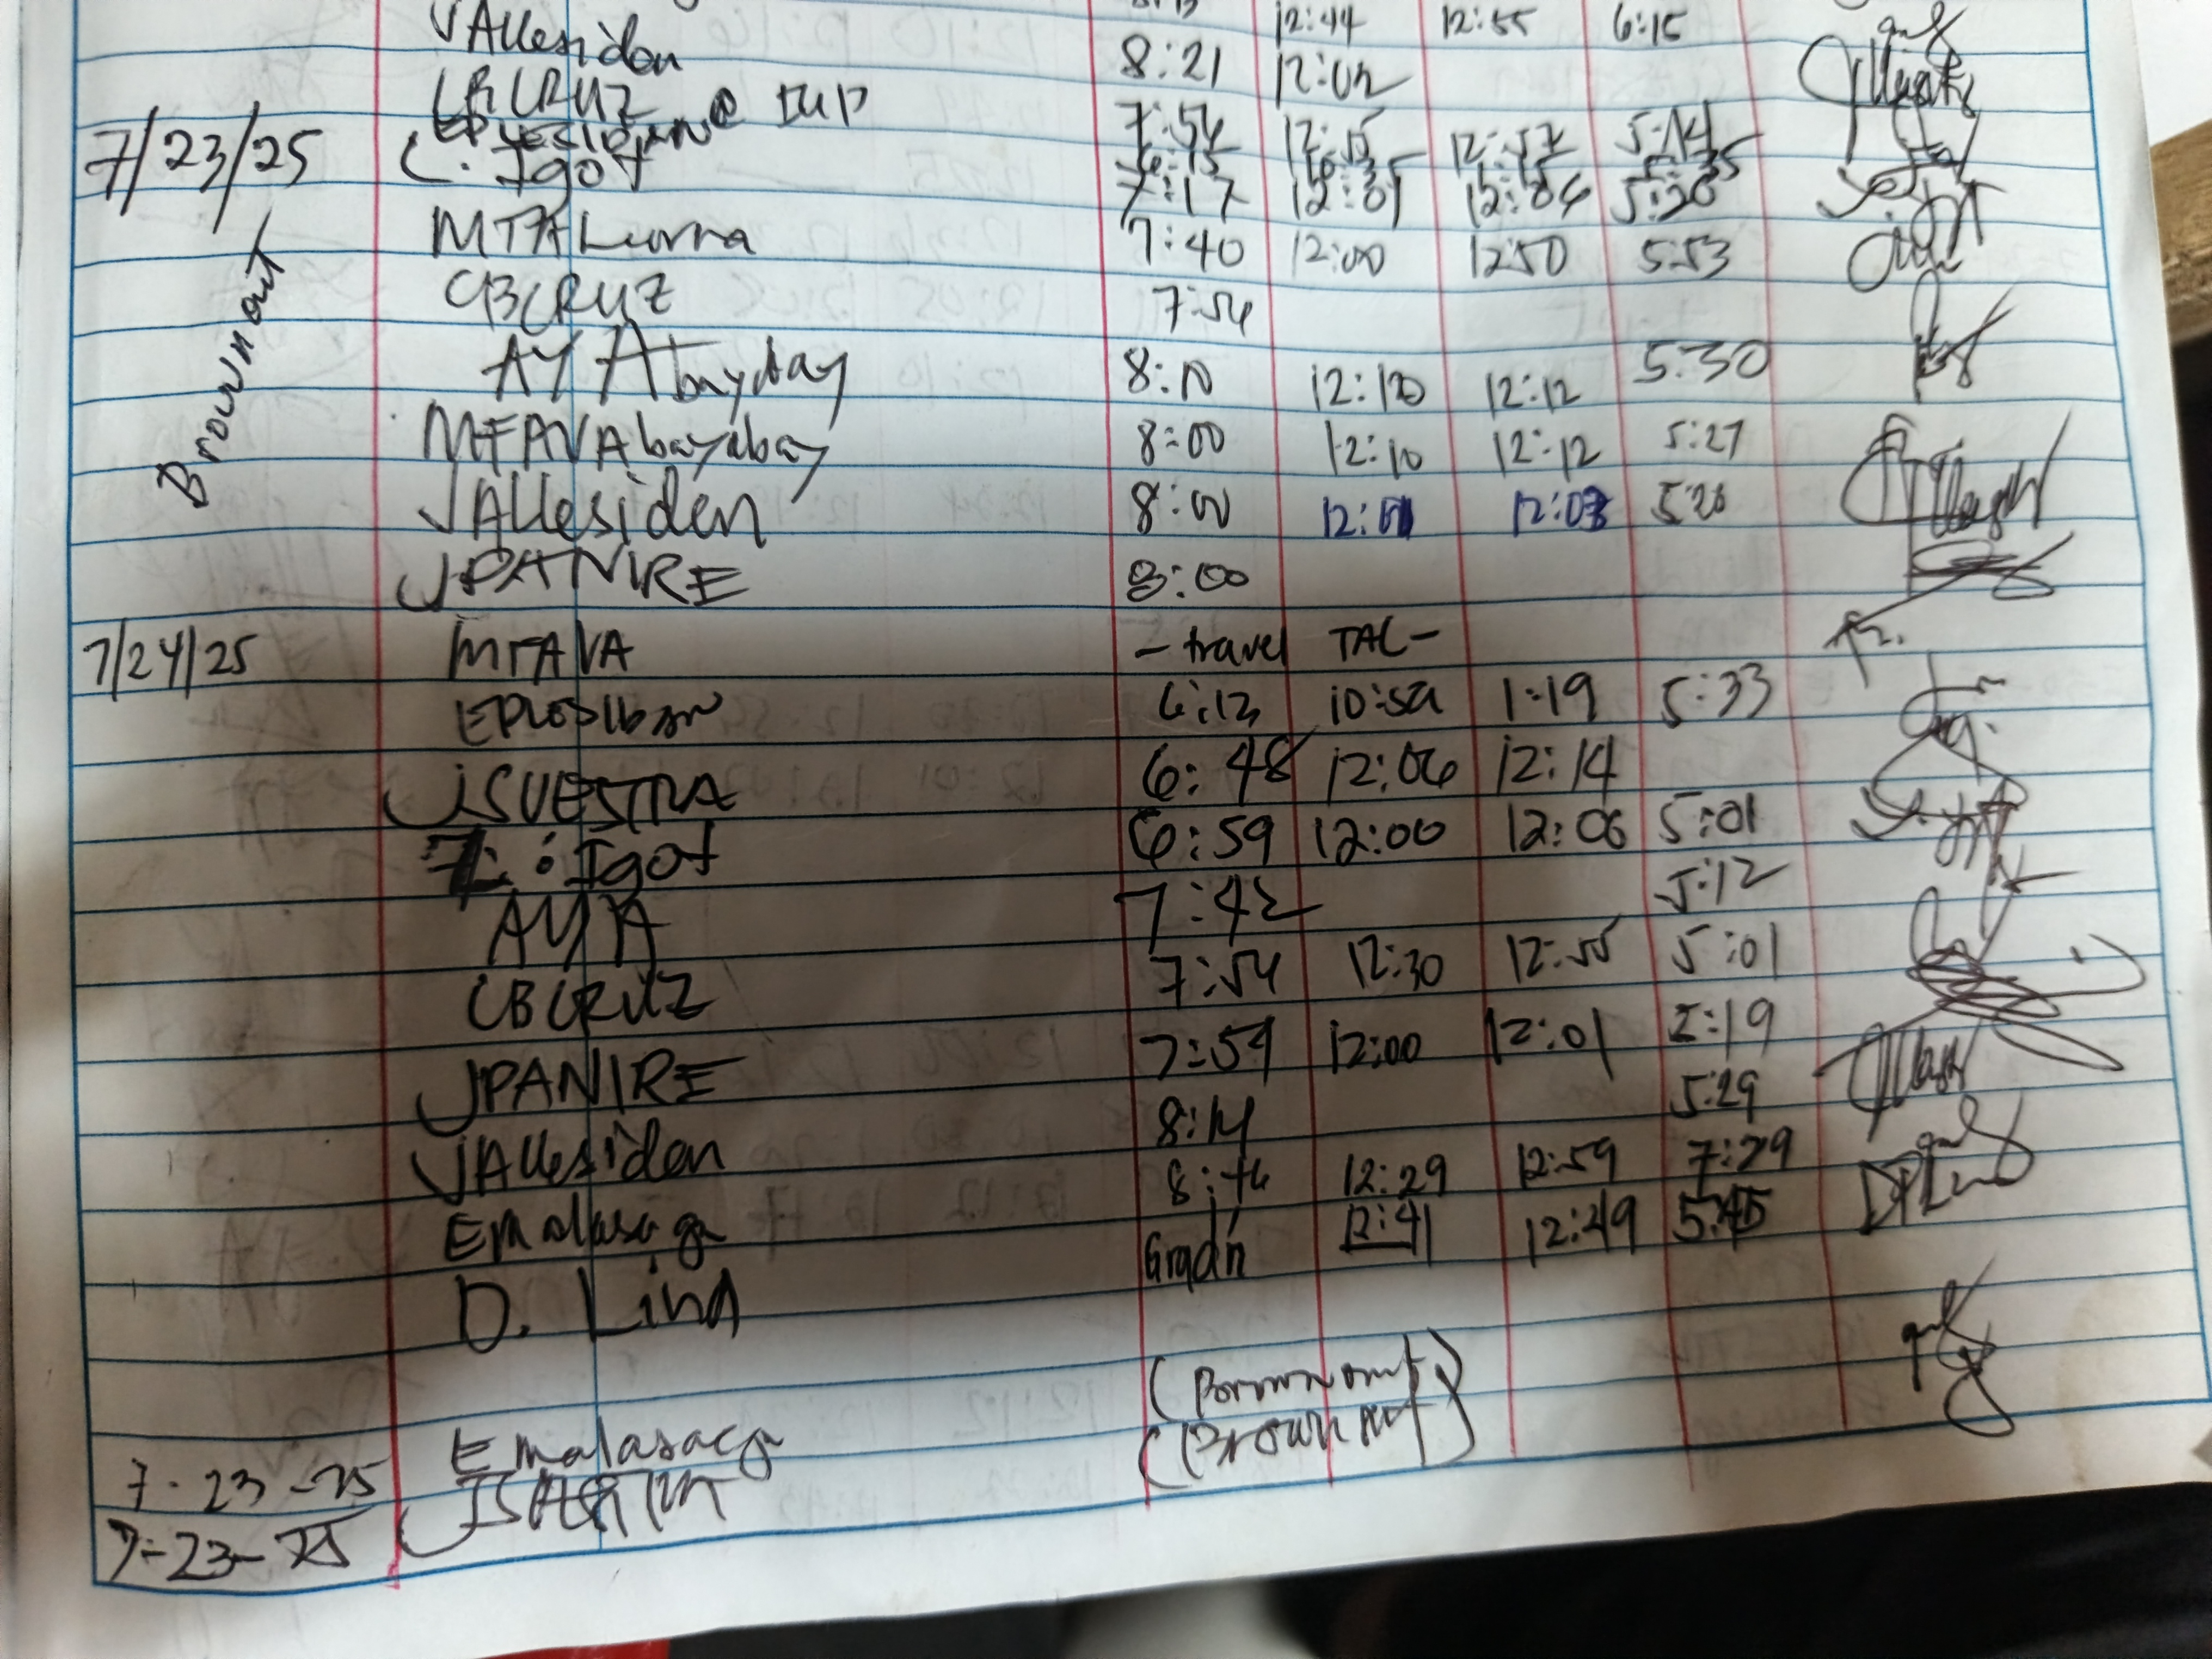 12:44 12:55 6:15
VAllesidan 8:21 12:02
CBCRUZ @ 7:54 12:15 12:57 5:14
7/23/25 C. Igot 7:17 12:01 12:06 5:20
MTALumna 7:40 12:00 1250 5:53
CBCRUZ 7:54
Brownout
AYAbayday 8:10 12:10 12:12 5:30
MFAVAbayabay 8:00 12:10 12:12 5:27
JAllesiden 8:00 12:01 12:03 5:20
JPANIRE 8:00
7/24/25 MFAVA - travel TAC-
6:12 10:59 1:19 5:33
JSUESTRA 6:48 12:06 12:14
Igot 6:59 12:00 12:06 5:01
AYA 7:42 5:12
CBCRUZ 7:54 12:30 12:55 5:01
JPANIRE 7:59 12:00 12:01 5:19
JAllesiden 8:14 5:29
Emalasaga 12:29 12:59 7:29
D. Lind 12:41 12:49 5:45
7-23-25 Emalasaga (Brownout)
7-23-25 (Brownout)